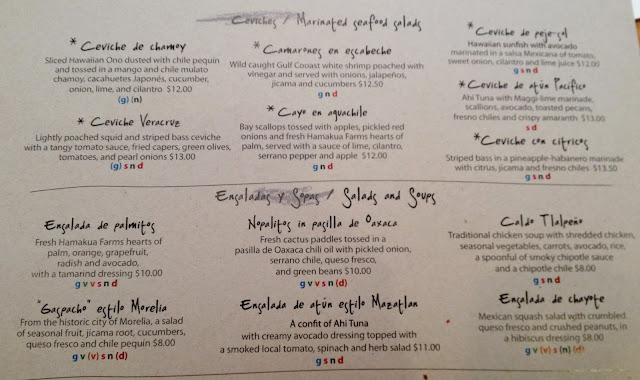 Ceviches / Marinated seafood salads
* Ceviche de chamoy
Sliced Hawaiian Ono dusted with chile pequin
and tossed in a mango and chile mulato
chamoy, cacahuetes Japonés, cucumber,
onion, lime, and cilantro $12.00
(g) (n)
* Ceviche Veracruz
Lightly poached squid and striped bass ceviche
with a tangy tomato sauce, fried capers, green olives,
tomatoes, and pearl onions $13.00
(g) s n d
* Camarones en escabeche
Wild caught Gulf Cooast white shrimp poached with
vinegar and served with onions, jalapeños,
jicama and cucumbers $12.50
g n d
* Cayo en aguachile
Bay scallops tossed with apples, pickled red
onions and fresh Hamakua Farms hearts of
palm, served with a sauce of lime, cilantro,
serrano pepper and apple $12.00
g n d
* Ceviche de peje-sol
Hawaiian sunfish with avocado
marinated in a salsa Mexicana of tomato,
sweet onion, cilantro and lime juice $12.00
g s n d
* Ceviche de atún Pacífico
Ahi Tuna with Maggi-lime marinade,
scallions, avocado, toasted pecans,
fresno chiles and crispy amaranth $13.00
s d
* Ceviche con cítricos
Striped bass in a pineapple-habanero marinade
with citrus, jicama and fresno chiles $13.50
g s n d
Ensaladas y Sopas / Salads and Soups
Ensalada de palmitos
Fresh Hamakua Farms hearts of
palm, orange, grapefruit,
radish and avocado,
with a tamarind dressing $10.00
g v v s n d
"Gaspacho" estilo Morelia
From the historic city of Morelia, a salad
of seasonal fruit, jicama root, cucumbers,
queso fresco and chile pequin $8.00
g v (v) s n (d)
Nopalitos in pasilla de Oaxaca
Fresh cactus paddles tossed in a
pasilla de Oaxaca chili oil with pickled onion,
serrano chile, queso fresco,
and green beans $10.00
g v v s n (d)
Ensalada de atún estilo Mazatlan
A confit of Ahi Tuna
with creamy avocado dressing topped with
a smoked local tomato, spinach and herb salad $11.00
g s n d
Caldo Tlalpeño
Traditional chicken soup with shredded chicken,
seasonal vegetables, carrots, avocado, rice,
a spoonful of smoky chipotle sauce
and a chipotle chile $8.00
g s n d
Ensalada de chayote
Mexican squash salad with crumbled
queso fresco and crushed peanuts, in
a hibiscus dressing $8.00
g v (v) s (n) (d)